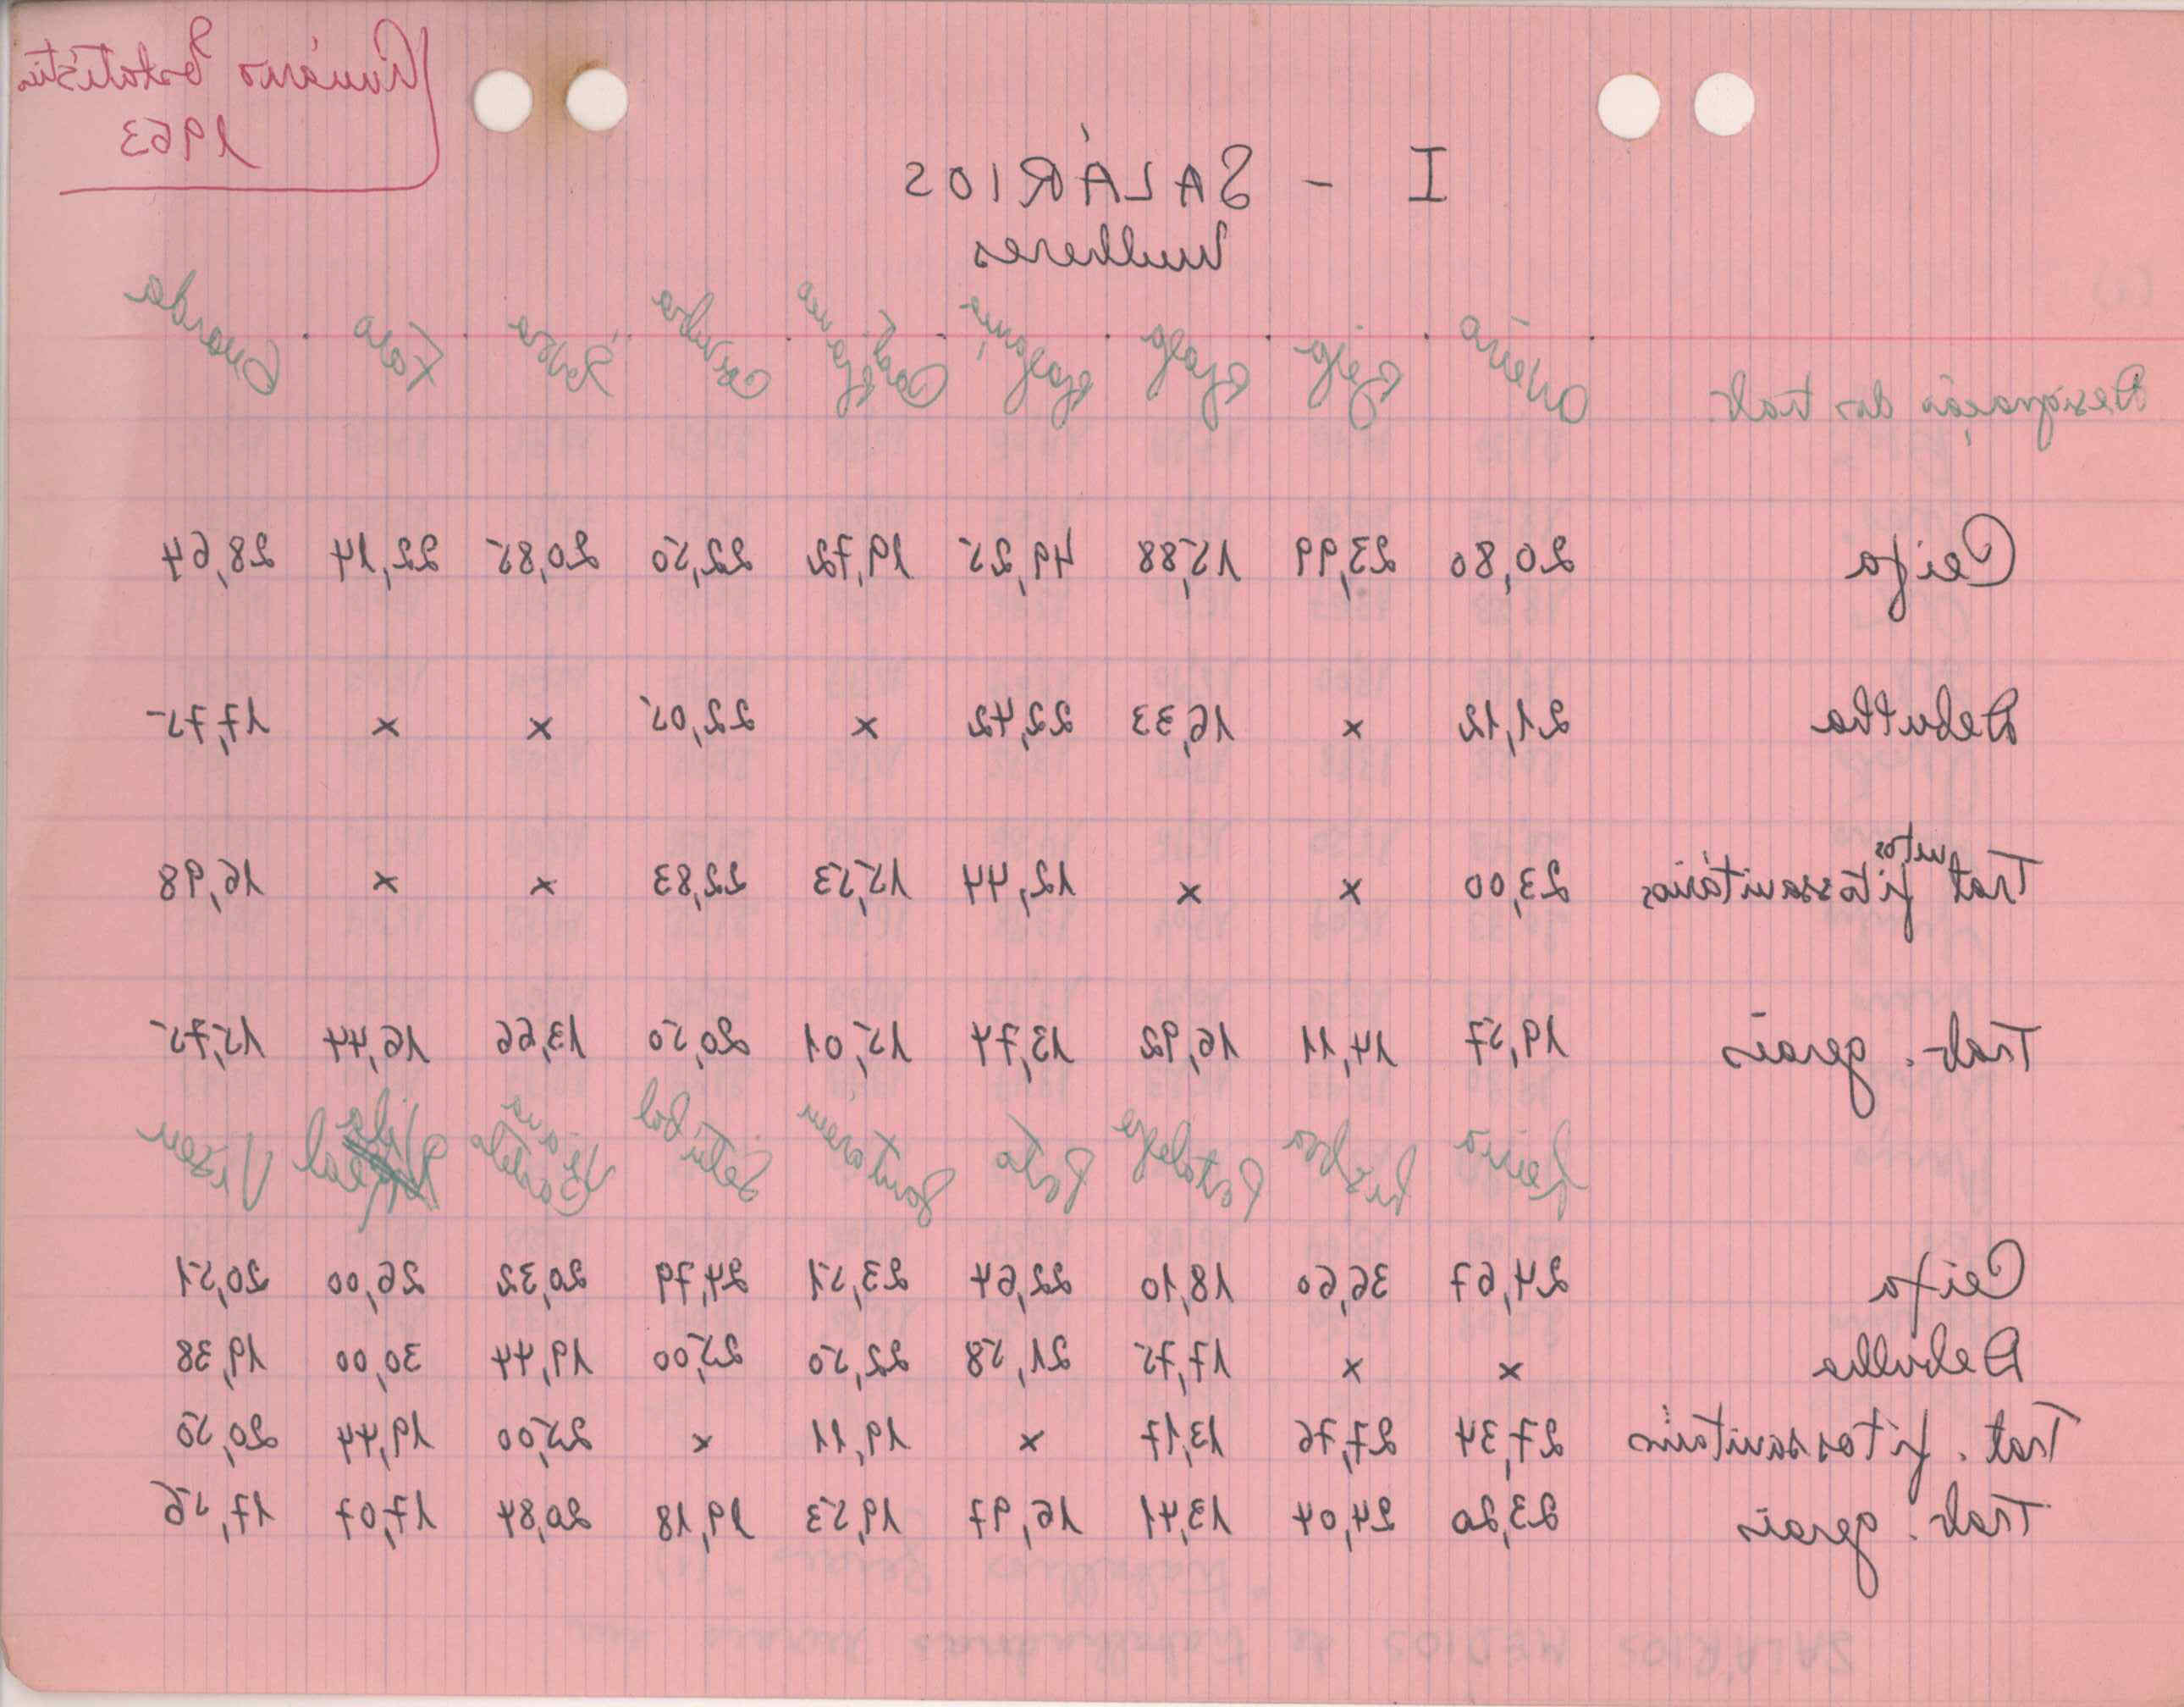 Anuário Estatístico
1963
I - SALÁRIOS
Mulheres
Designação dos trab. Aveiro Beja Braga Bragança Castelo Branco Coimbra Évora Faro Guarda
Ceifa 20,80 23,99 15,88 49,25 19,72 22,50 20,85 22,14 28,64
Debulha 21,12 x 16,33 22,42 x 22,05 x x 17,75
Tratmetos fitossanitários 23,00 x x 12,44 15,53 22,83 x x 16,98
Trab. gerais 19,57 14,11 16,92 13,74 15,01 20,50 13,66 16,44 15,75
Leiria Lisboa Portalegre Porto Santarém Setúbal Viana Castelo Vila Real Viseu
Ceifa 24,67 36,60 18,10 22,64 23,51 24,79 20,32 26,00 20,51
Debulha x x 17,75 21,58 22,50 25,00 19,44 30,00 19,38
Trat. fitossanitário 27,34 27,76 13,17 x 19,11 x 25,00 19,44 20,50
Trab. gerais 23,20 24,04 13,41 16,97 19,53 19,18 20,84 17,07 17,56